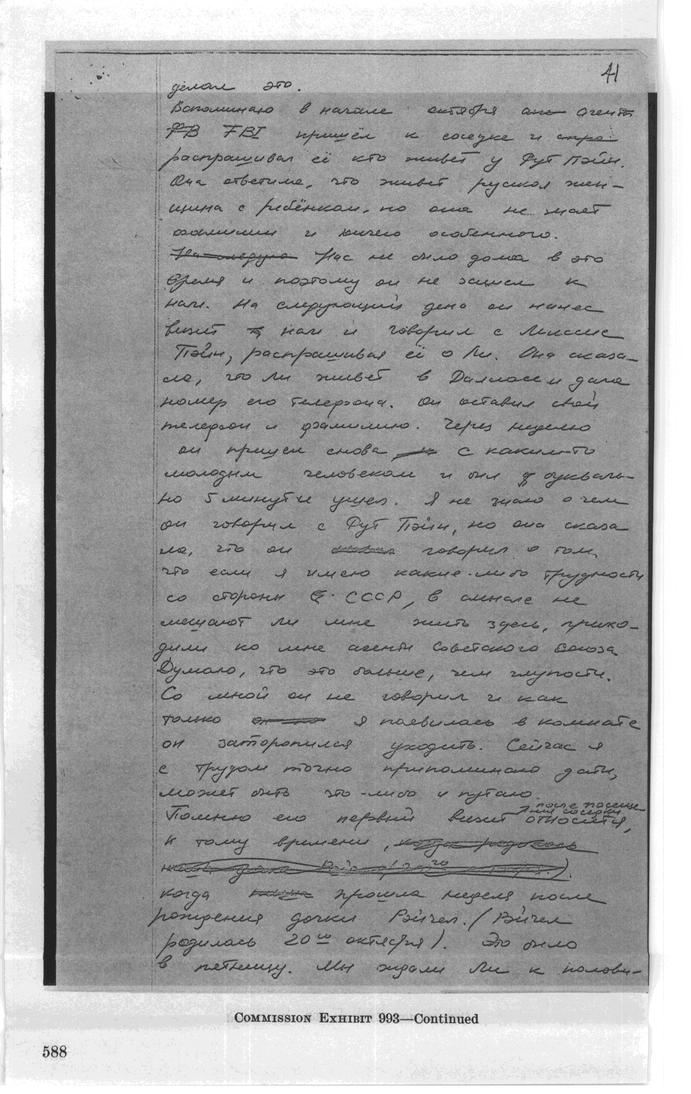 41
делал это.
Вспоминаю в начале октября агент
FBI пришёл к соседке и
распрашивал её кто живёт у Рут Пэйн.
Она ответила, что живёт руская жен-
щина с ребёнком, но она не знает
фамилии и ничего особенного.
Нас не было дома в это
время и поэтому он не зашел к
нам. На следующий день он нанес
визит к нам и говорил с Миссис
Пэйн, распрашивая её о Ли. Она сказа-
ла, что Ли живёт в Далласе и дала
номер его телефона. Он оставил свой
телефон и фамилию. Через неделю
он пришел снова с каким-то
молодым человеком и был букваль-
но 5 минут и ушел. Я не знаю о чем
он говорил с Рут Пэйн, но она сказа
ла, что он говорил о том,
что если я имею какие-либо трудности
со стороны СССР, в смысле не
мешают ли мне жить здесь, прихо-
дили ко мне агенты Советского Союза
Думаю, что это больше, чем глупости.
Со мной он не говорил и как
только я появилась в комнате
он заторопился уходить. Сейчас я
с трудом точно припоминаю даты,
может быть что-либо и путаю.
после посеще
ния соседки
Помню его первый визит относится,
к тому времени,
когда прошла неделя после
рождения дочки Рэйчел. (Рэйчел
родилась 20го октября). Это было
в пятницу. Мы ждали Ли к полови-
COMMISSION EXHIBIT 993—Continued
588